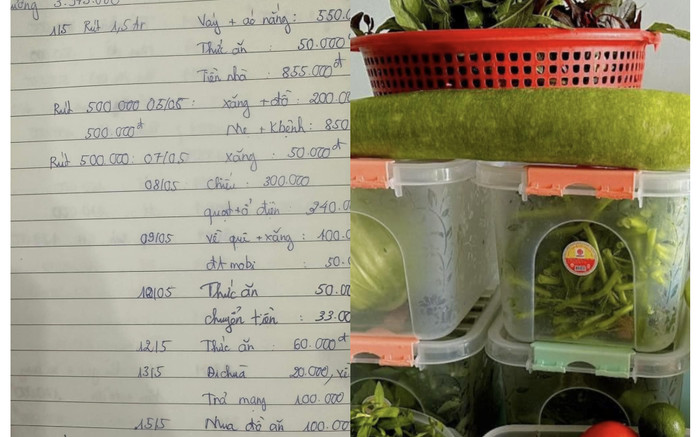 ương 3.545.000
1/5 Rút 1,5 tr Váy + áo nắng: 550.0
Thức ăn : 50.000
Tiền nhà : 855.000đ
Rút 500.000 05/05: xăng + đồ: 200.00
500.000đ Mẹ + Khệnh: 850
Rút 500.000: 07/05 xăng : 50.000đ
08/05 chiếu : 300.000
quạt + ổ điện : 240.0
09/05 về quê + xăng : 100.0
đt mobi : 50.
12/05 Thức ăn : 50.00
chuyển tiền : 33.00
12/5 Thức ăn : 60.000đ
13/5 Đi chùa : 20.000,
Trả mạng : 100.000
15/5 Mua đồ ăn : 100.00